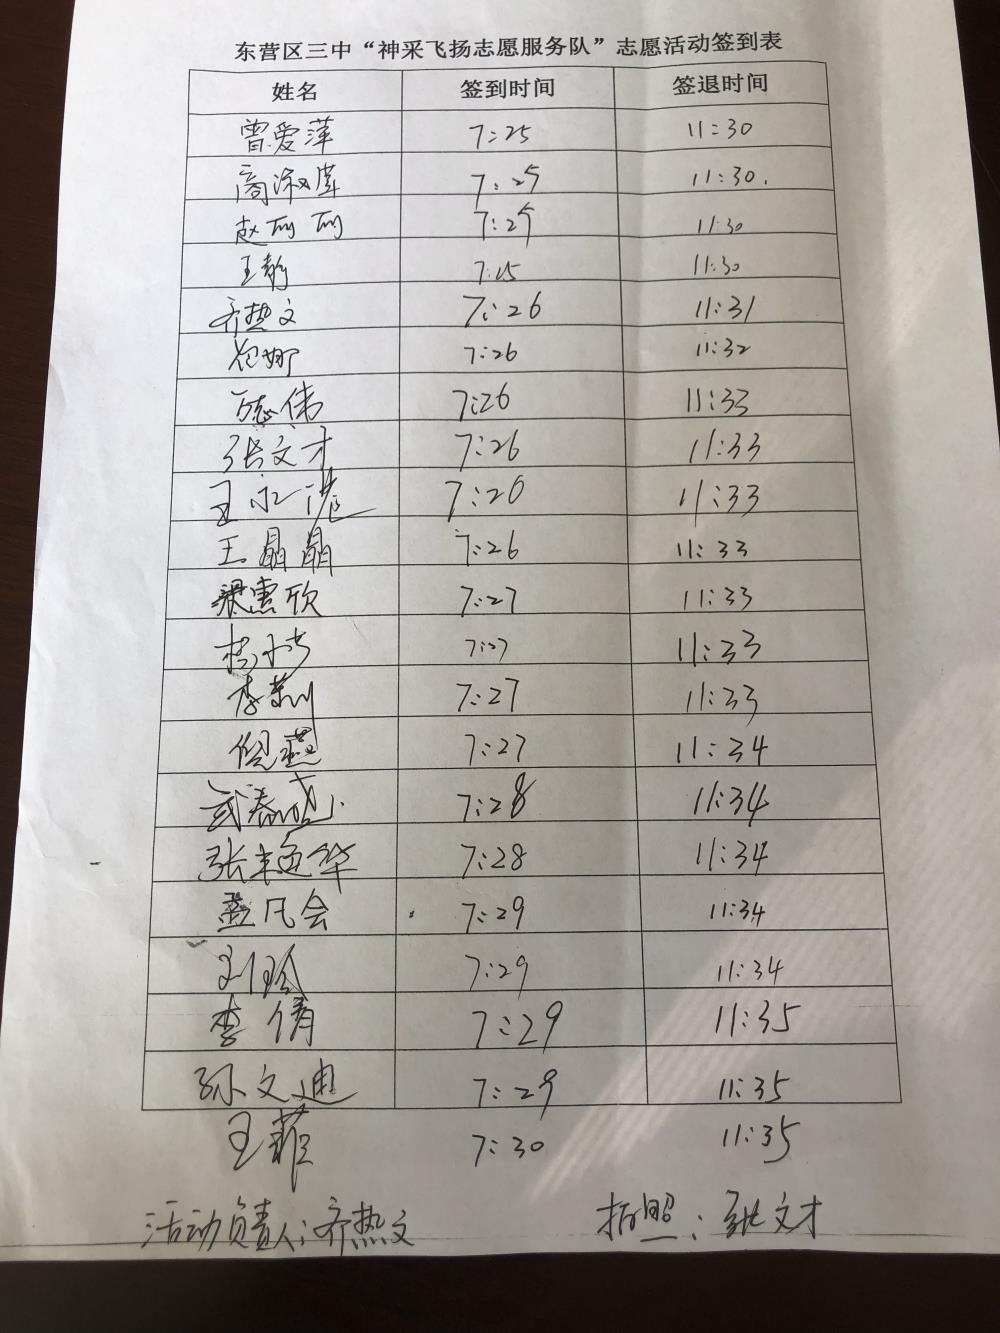 东营区三中“神采飞扬志愿服务队”志愿活动签到表
姓名 签到时间 签退时间
曾爱萍 7:25 11:30
商淑萍 7:25 11:30.
赵丽丽 7:25 11:30
王静 7:25 11:30
齐热文 7:26 11:31
娜 7:26 11:32
伟 7:26 11:33
张文才 7:26 11:33
王永港 7:26 11:33
王晶晶 7:26 11:33
梁惠欣 7:27 11:33
杨 7:27 11:33
李 7:27 11:33
倪燕 7:27 11:34
武春成 7:28 11:34
张艳华 7:28 11:34
燕凡会 7:29 11:34
刘玲 7:29 11:34
李倩 7:29 11:35
孙文迪 7:29 11:35
王菲 7:30 11:35
活动负责人:齐热文 拍照:张文才